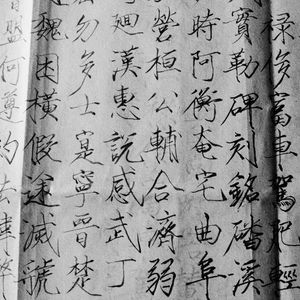 祿侈富車駕肥輕
實勒碑刻銘磻溪
時阿衡奄宅曲阜
營桓公輔合濟弱
廻漢惠說感武丁
勿多士寔寧晉楚
魏困橫假途滅虢
盟何遵約法韓